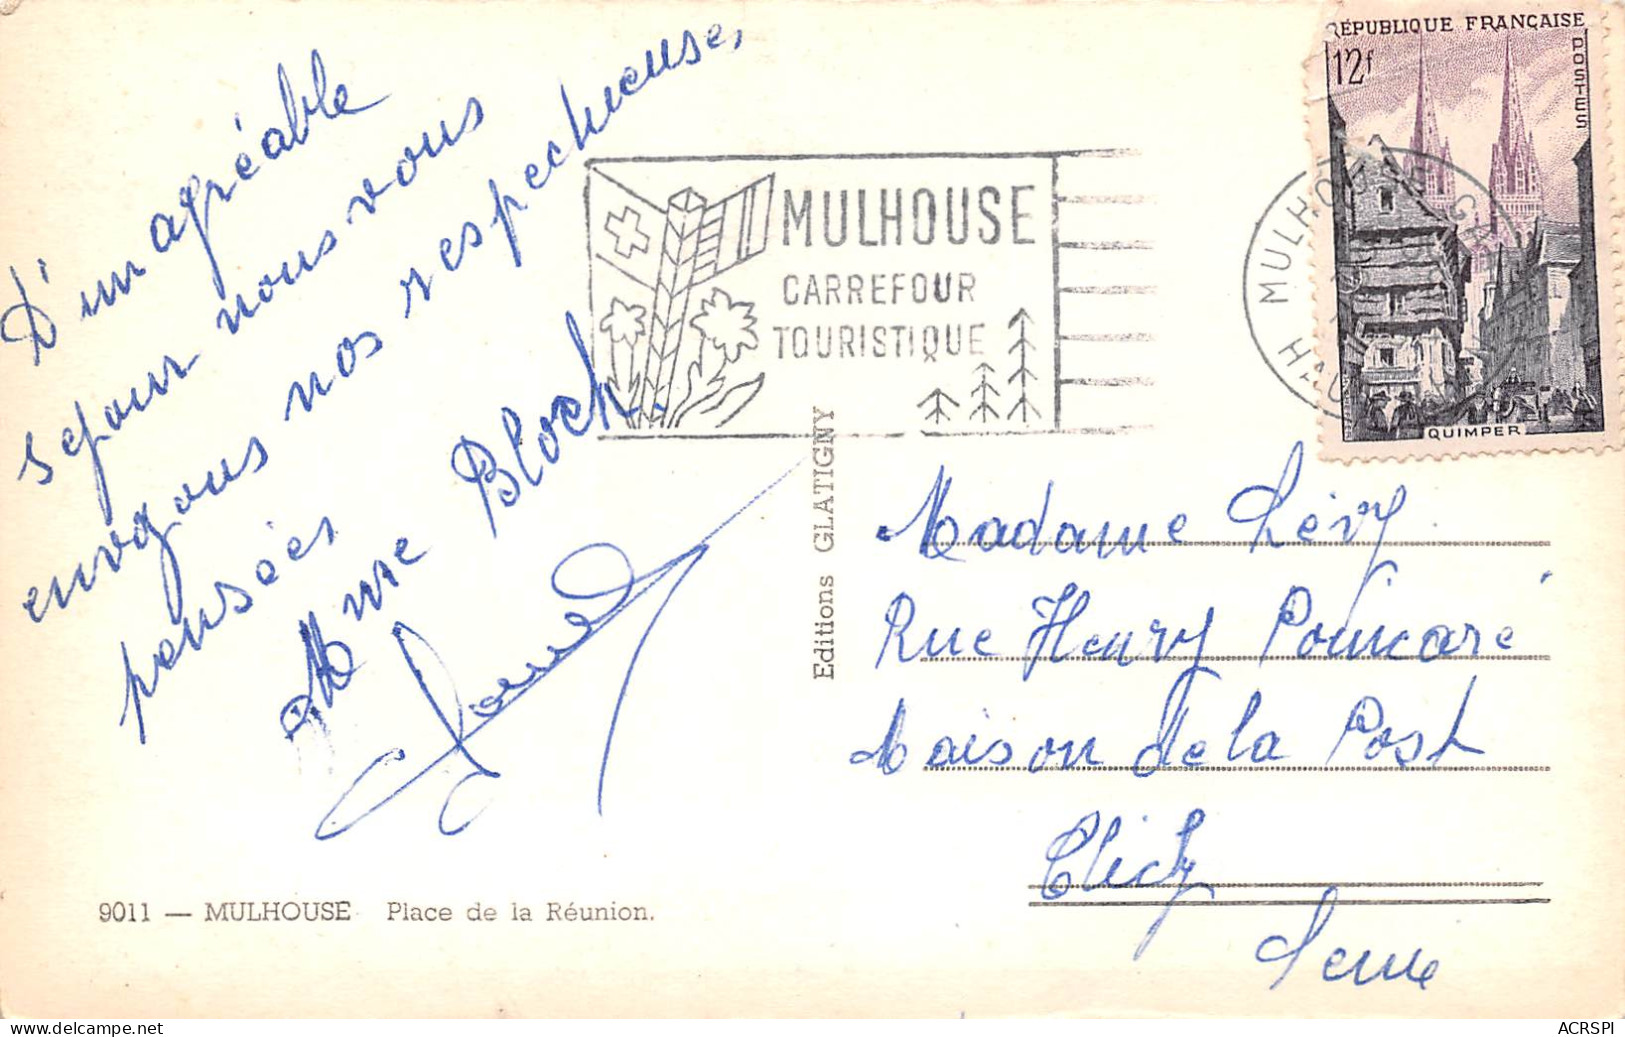 D'un agréable
sejour nous vous
envoyons nos respectueuses
pensées
Mme Bloch.
MULHOUSE
CARREFOUR
TOURISTIQUE
RÉPUBLIQUE FRANÇAISE
12f
POSTES
QUIMPER
MULHOUSE GARE
HAUT
Editions GLATIGNY
Madame Lévy
Rue Henry Poincaré
Maison de la Post
Clichy
Seine
9011 — MULHOUSE Place de la Réunion.
www.delcampe.net
ACRSPI